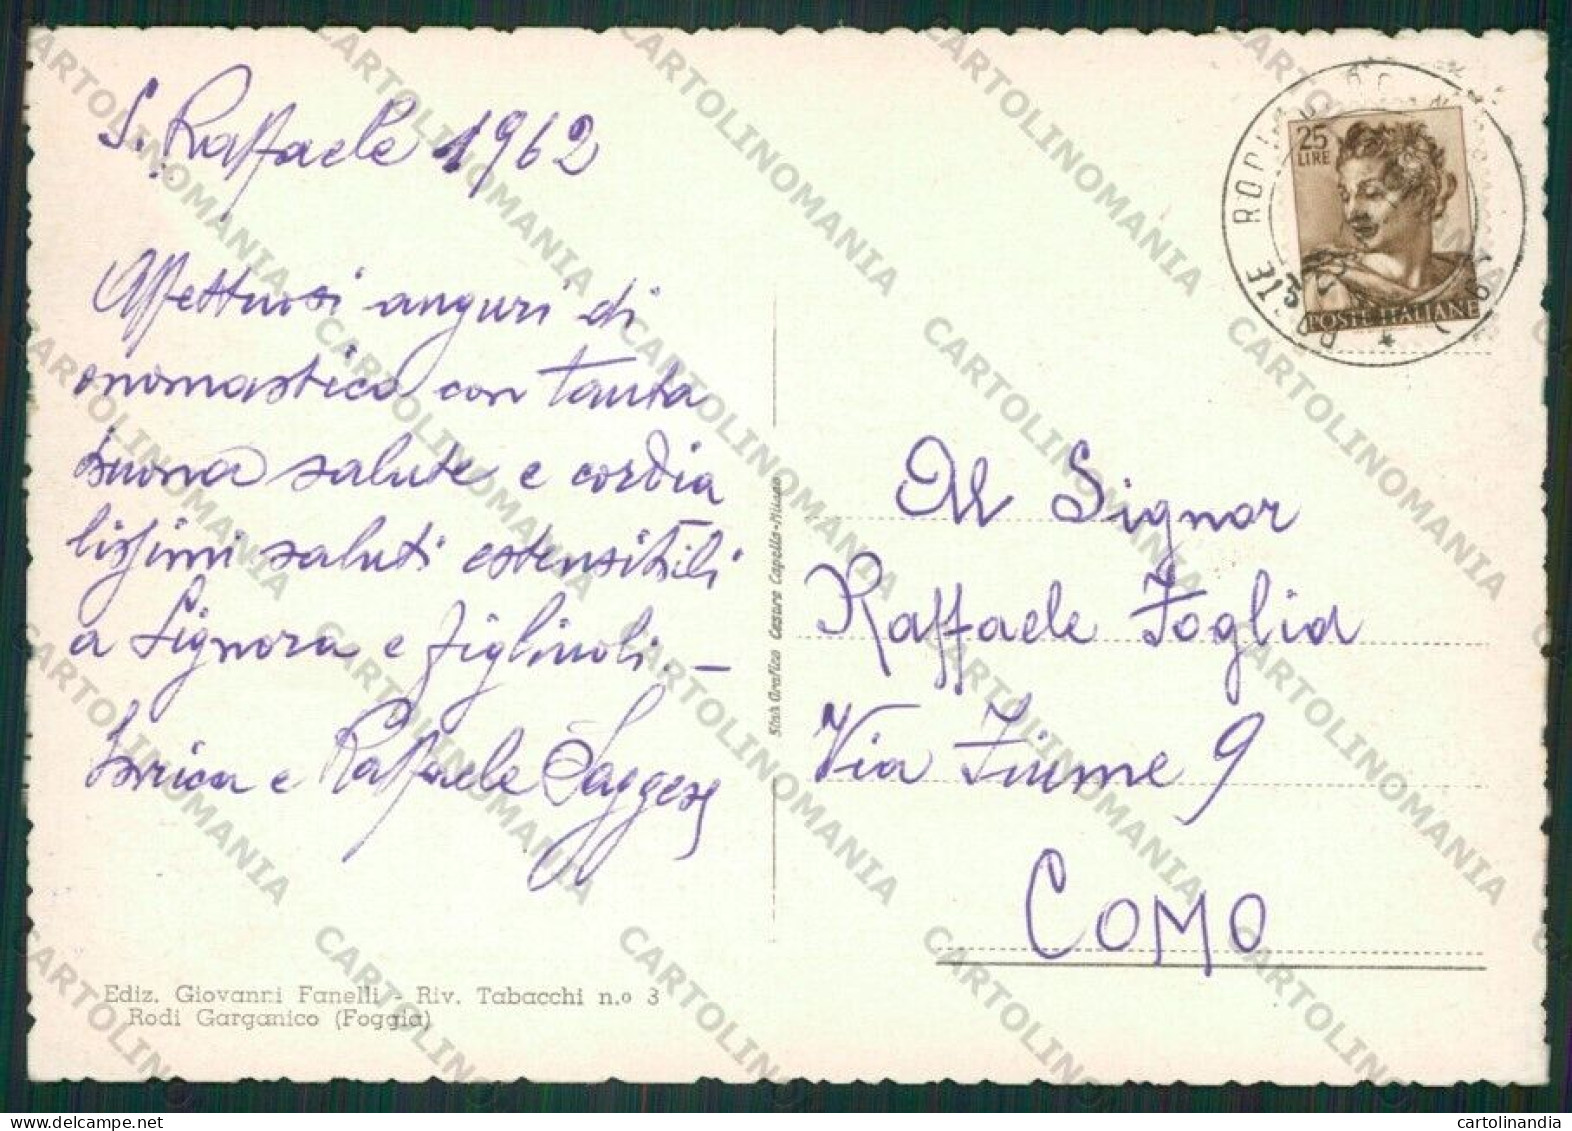 S. Raffaele 1962
Affettuosi auguri di
onomastico con tanta
buona salute e cordia
lissimi saluti estensibili
a Signora e figliuoli. —
e Raffaele Saggese
Ediz. Giovanni Fanelli - Riv. Tabacchi n.o 3
Rodi Garganico (Foggia)
Stab Grafico Cesare Capello-Milano
25
LIRE
POSTE ITALIANE
Al Signor
Raffaele Foglia
Via Fiume 9
COMO
CARTOLINOMANIA
www.delcampe.net
cartolinandia